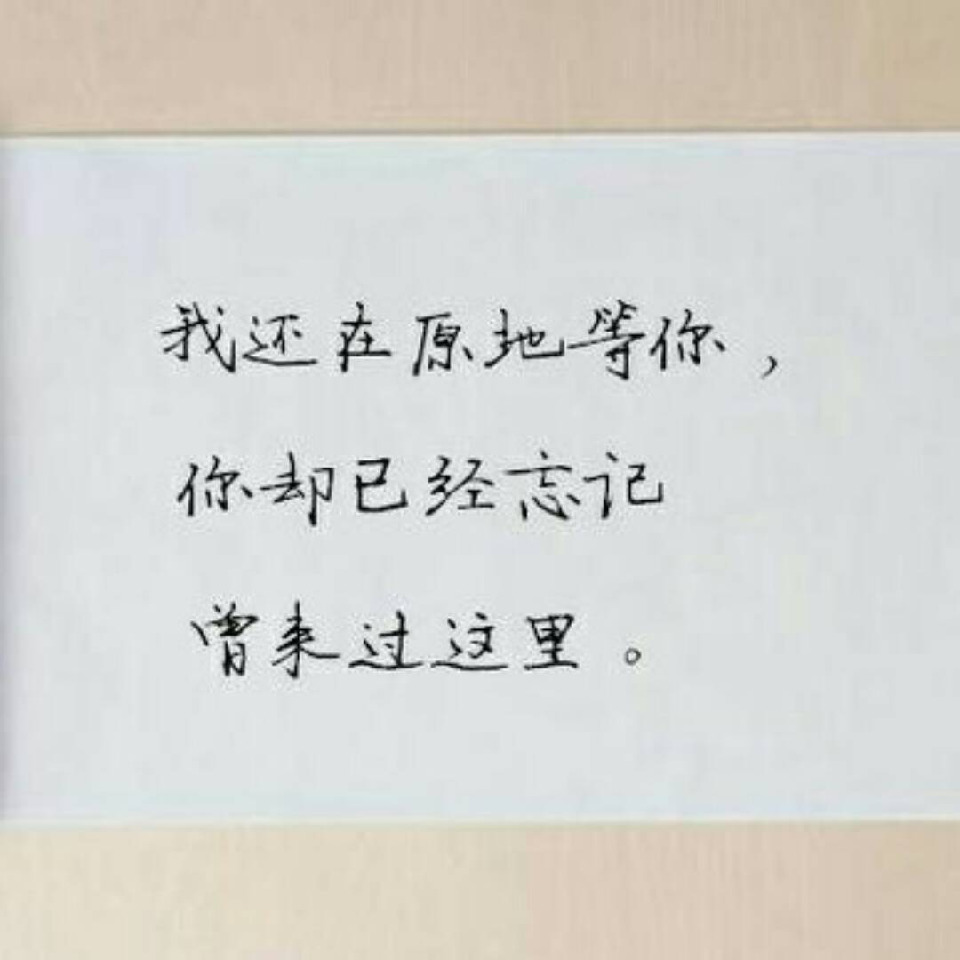 我还在原地等你，
你却已经忘记
曾来过这里。